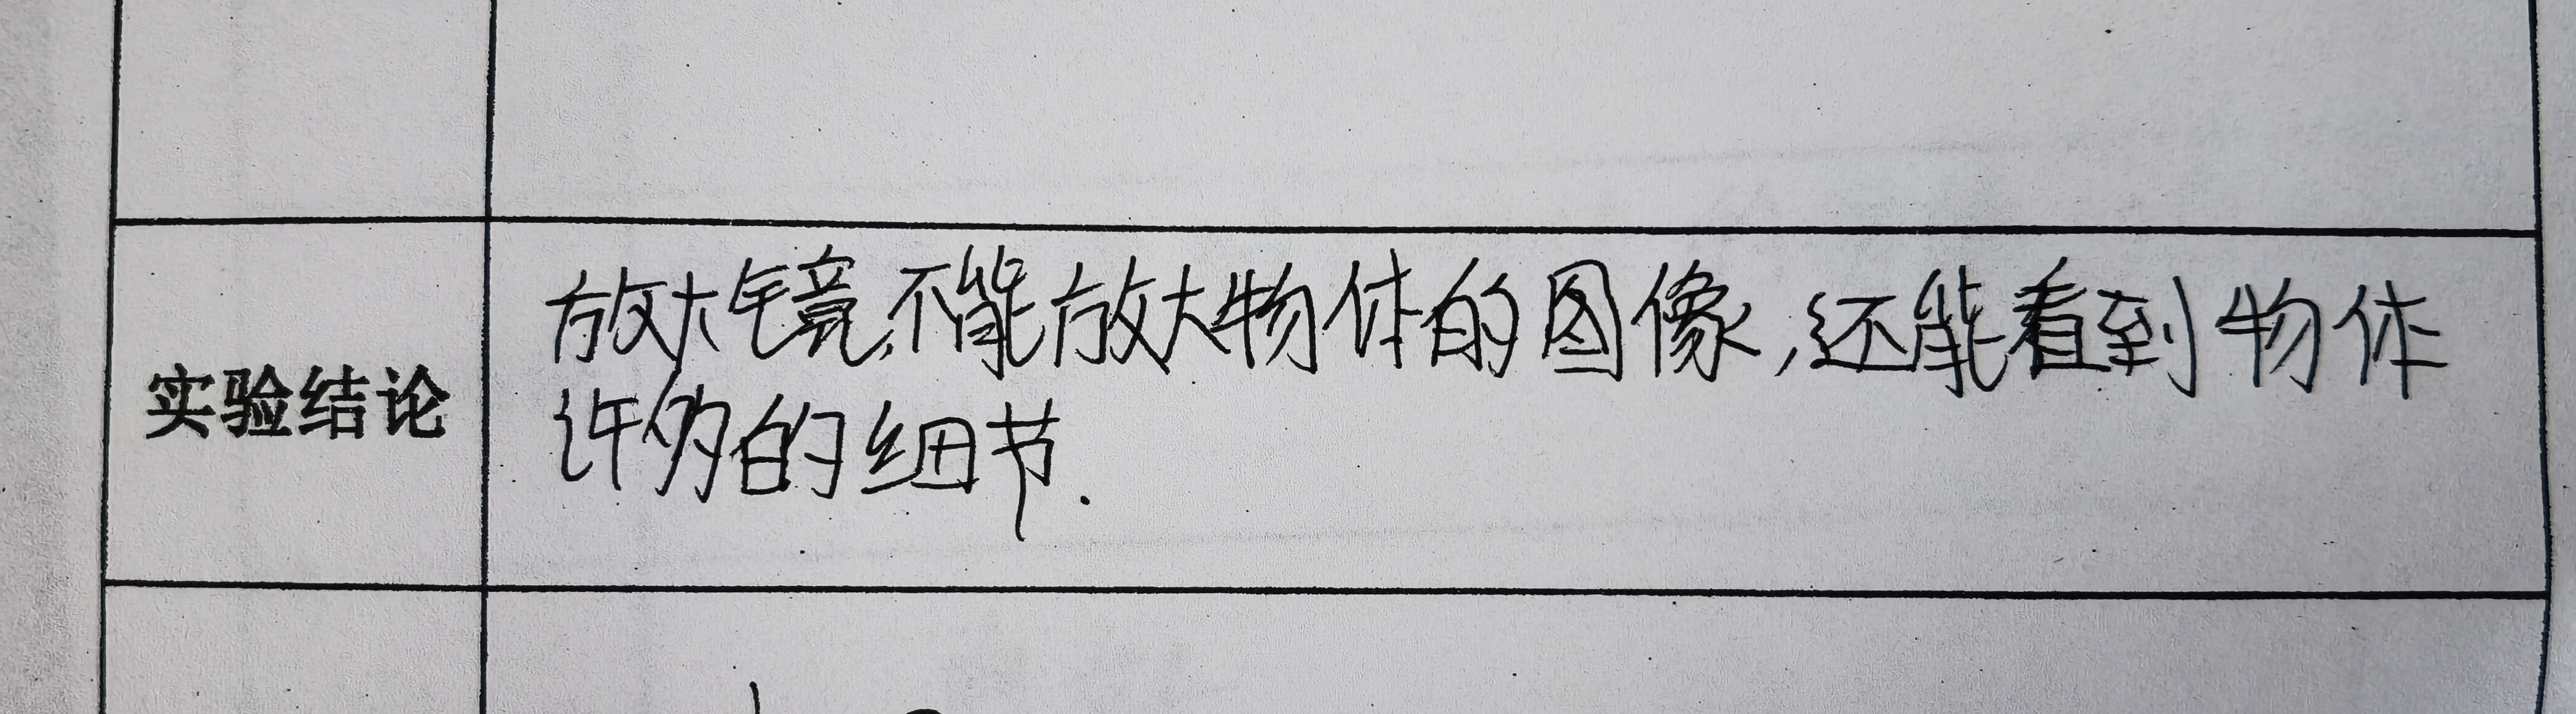 放大镜,不能放大物体的图像,还能看到物体
实验结论
许多的细节.